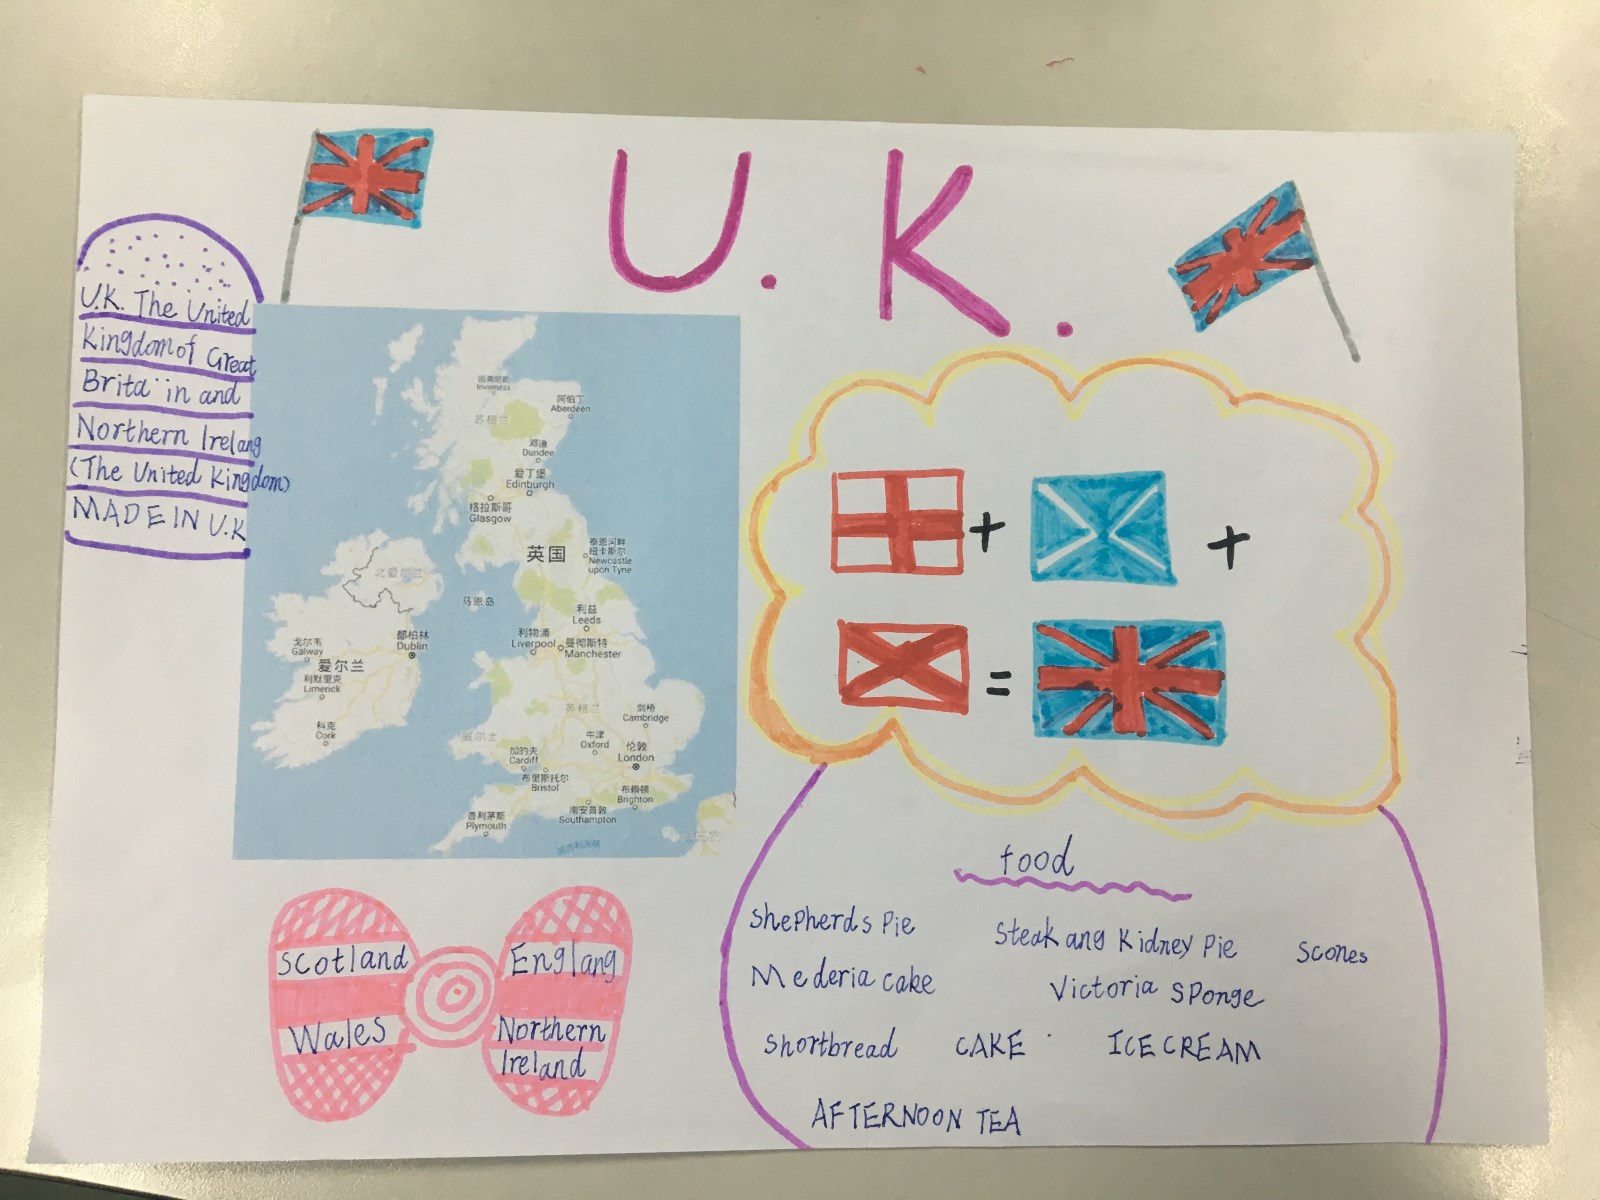 U.K.
U.K. The United
Kingdom of Great
Brita in and
Northern Irelang
(The United Kingdom)
MADE IN U.K
因弗尼斯
Inverness
苏格兰
阿伯丁
Aberdeen
邓迪
Dundee
爱丁堡
Edinburgh
格拉斯哥
Glasgow
英国
泰恩河畔
纽卡斯尔
Newcastle
upon Tyne
北爱尔兰
马恩岛
利兹
Leeds
利物浦
Liverpool
曼彻斯特
Manchester
戈尔韦
Galway
都柏林
Dublin
爱尔兰
利默里克
Limerick
科克
Cork
英格兰
剑桥
Cambridge
威尔士
牛津
Oxford
伦敦
London
加的夫
Cardiff
布里斯托尔
Bristol
布赖顿
Brighton
南安普敦
Southampton
普利茅斯
Plymouth
+
+
=
Scotland
Wales
Englang
Northern
Ireland
food
Shepherds Pie
Steak ang Kidney Pie
Scones
Mederia cake
Victoria Sponge
Shortbread
CAKE
ICE CREAM
AFTERNOON TEA